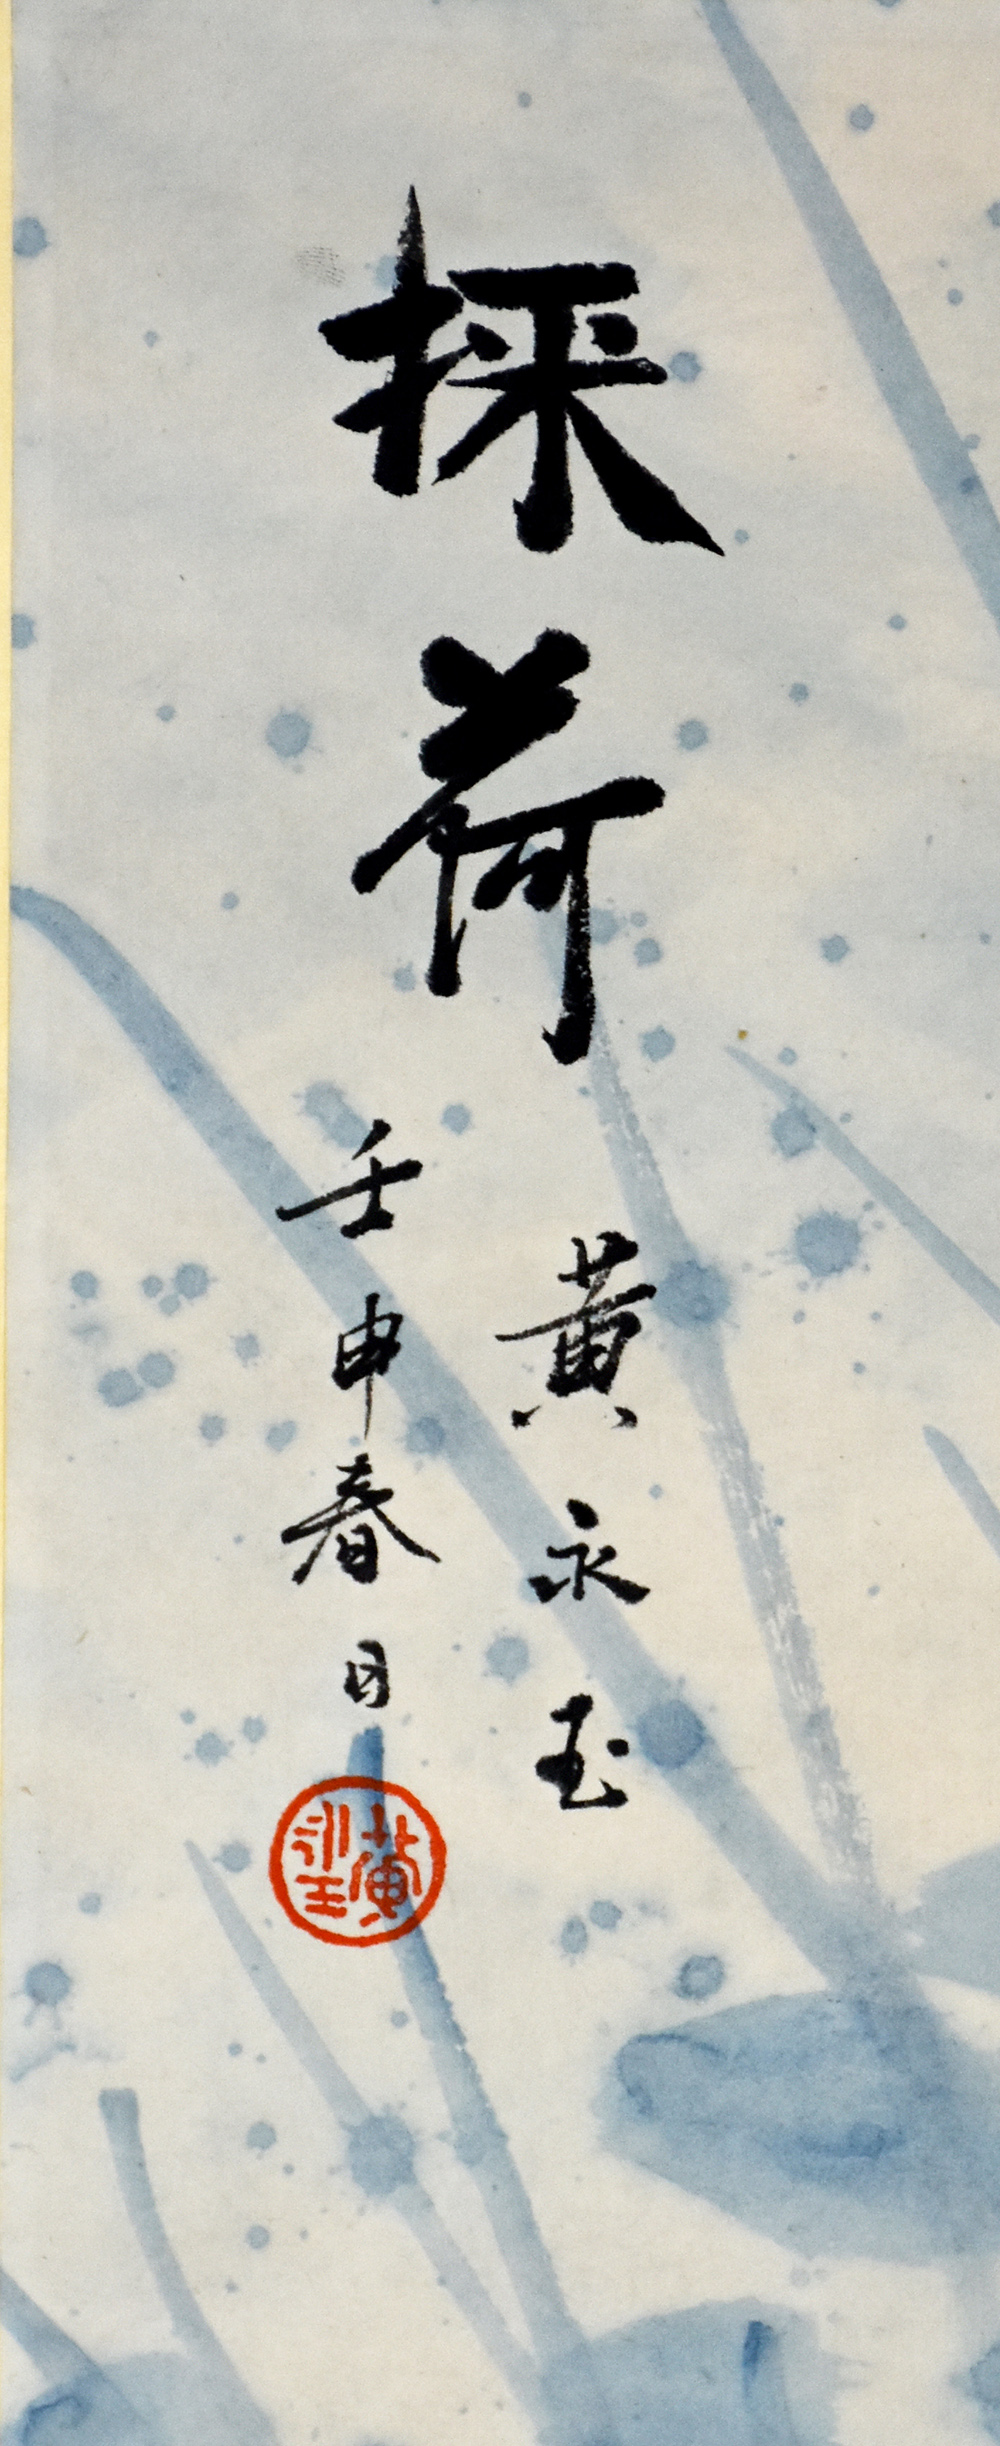 採荷
黄永玉
壬申春日
黄永玉